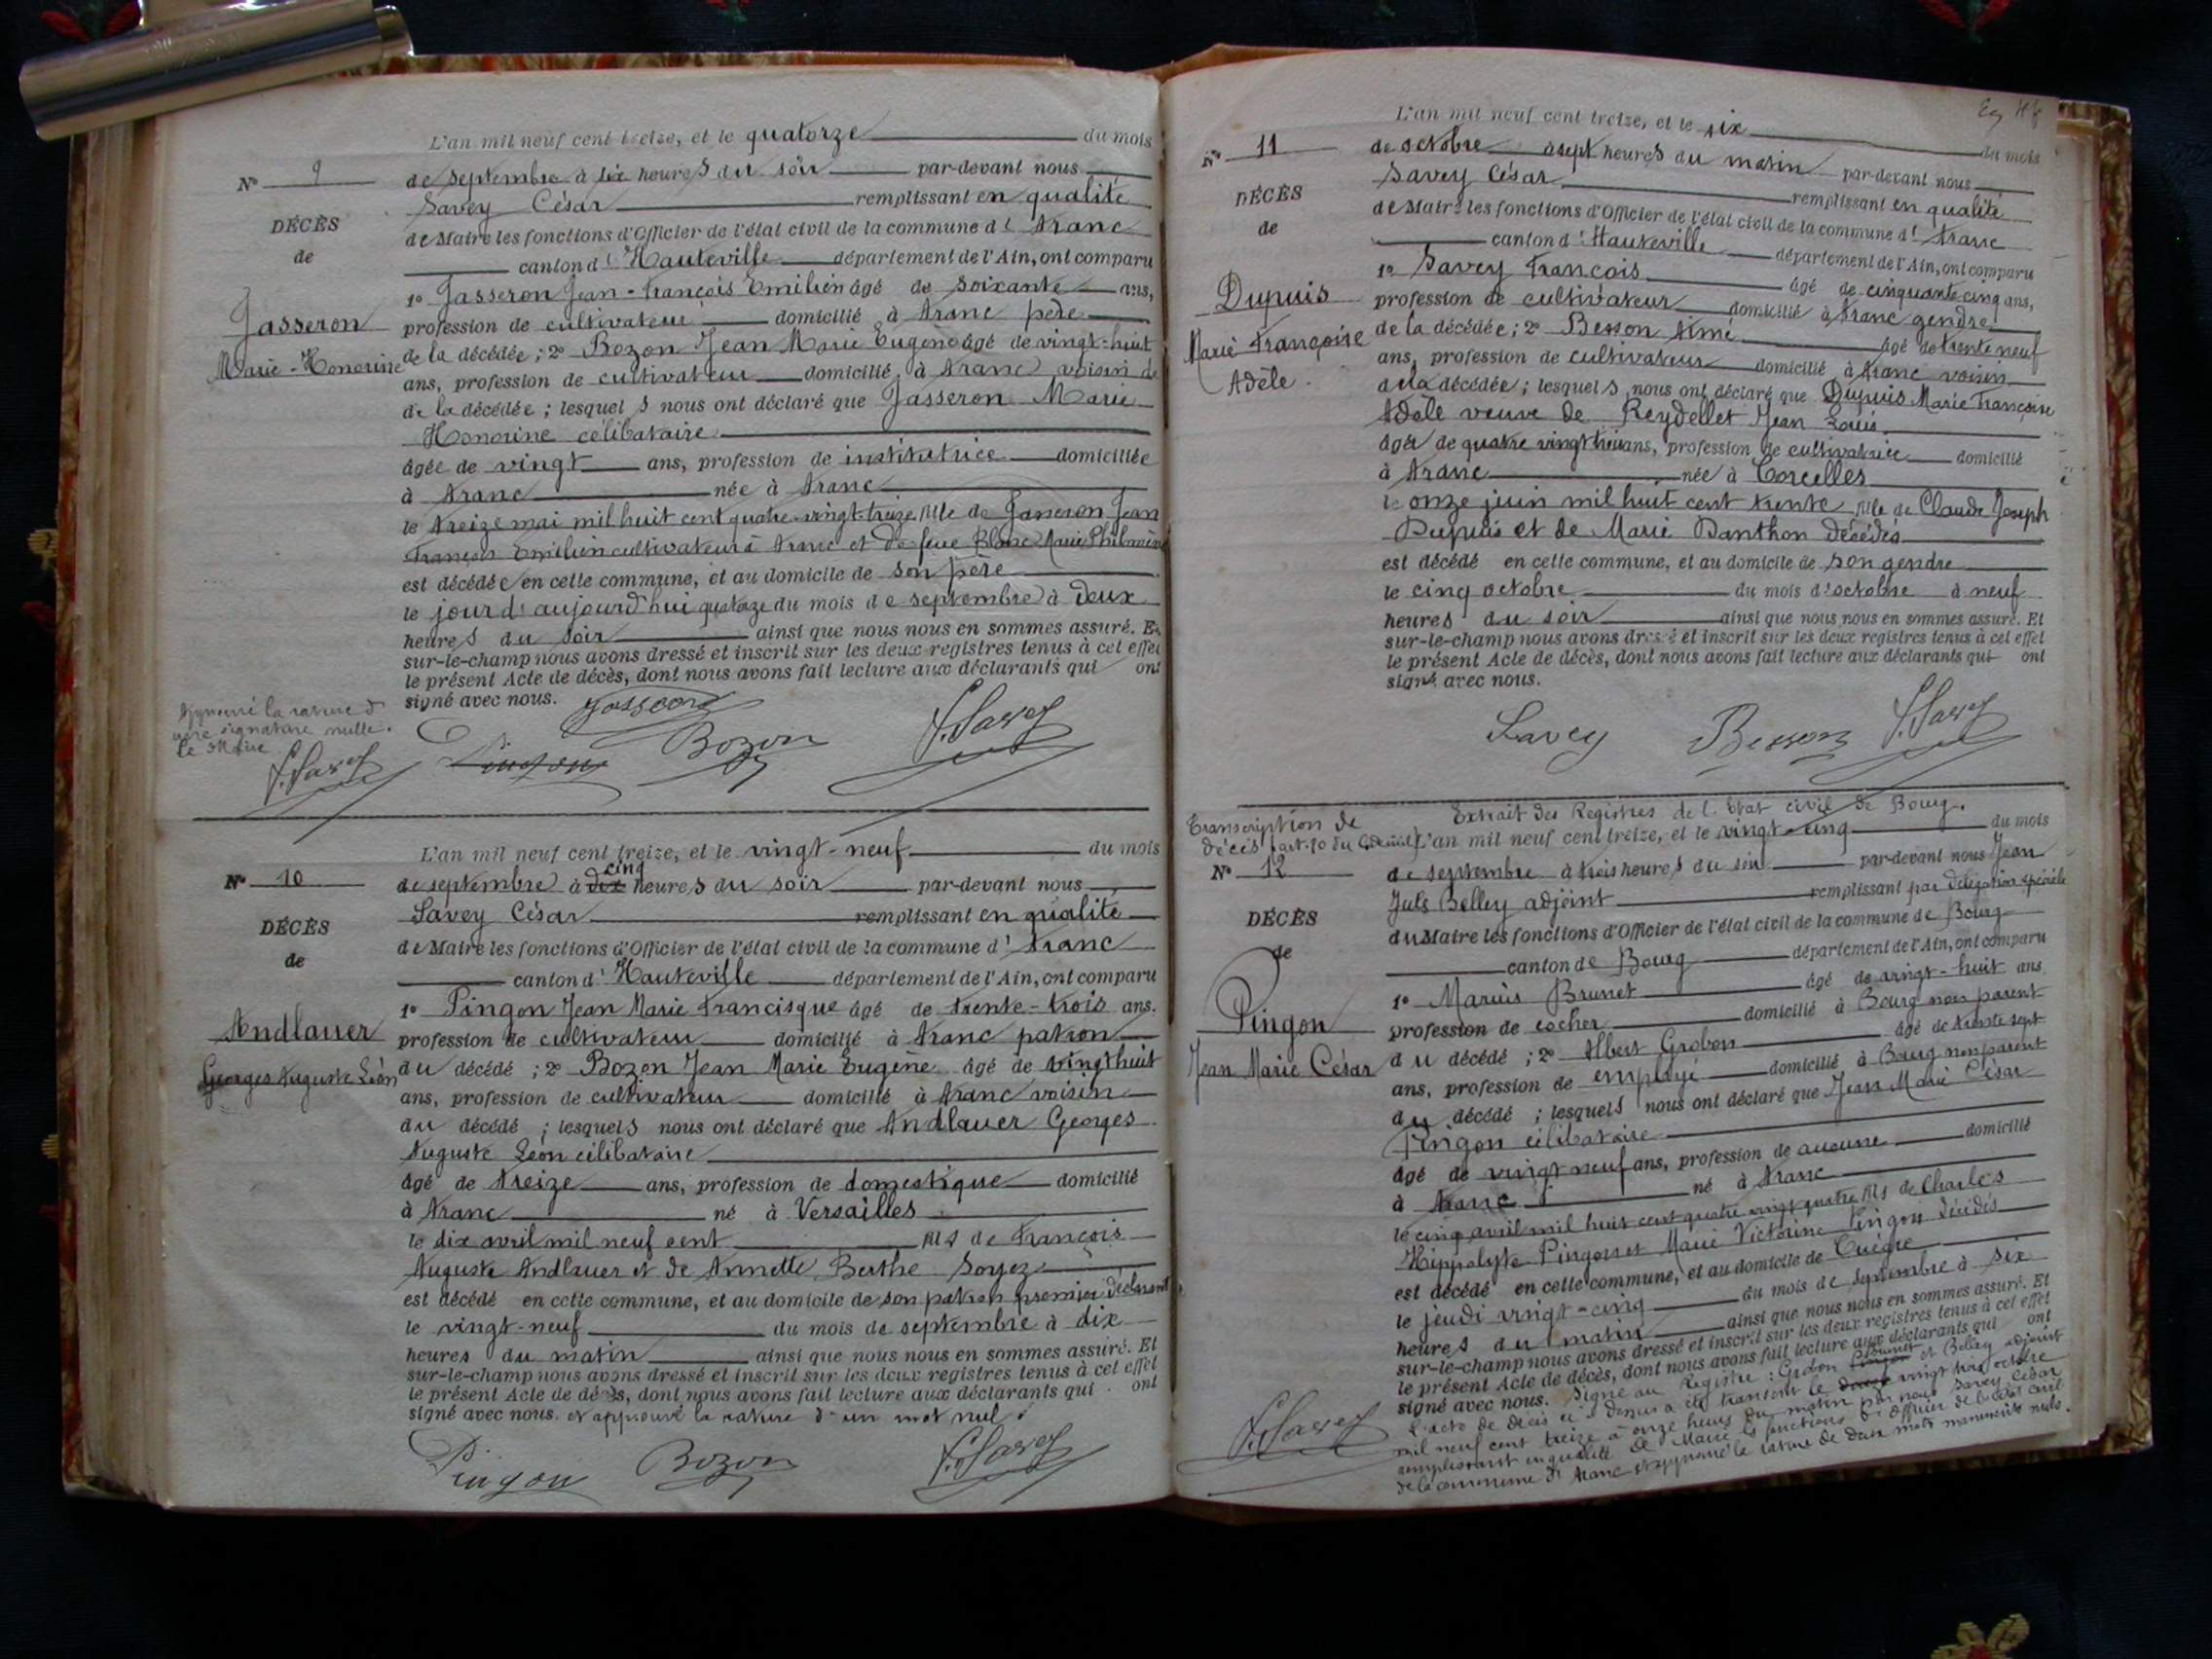 L'an mil neuf cent treize, et le quatorze du mois
N° 9
de septembre à six heures du soir par-devant nous
Savey César remplissant en qualité
DÉCÈS
de Maire les fonctions d'Officier de l'état civil de la commune d' Aranc
de
canton d' Hauteville département de l'Ain, ont comparu
1° Jasseron Jean-François Emilien âgé de soixante ans,
Jasseron
profession de cultivateur domicilié à Aranc père
Marie-Honorine
de la décédée ; 2° Bozon Jean Marie Eugène âgé de vingt-huit
ans, profession de cultivateur domicilié à Aranc voisin de
de la décédée ; lesquels nous ont déclaré que Jasseron Marie
Honorine célibataire
âgée de vingt ans, profession de institutrice domiciliée
à Aranc née à Aranc
le treize mai mil huit cent quatre-vingt-treize fille de Jasseron Jean
François Emilien cultivateur à Aranc et de feue Blanc Marie Philomène
est décédée en cette commune, et au domicile de son père
le jour d'aujourd'hui quatorze du mois de septembre à deux
heures du soir ainsi que nous nous en sommes assuré. Et
sur-le-champ nous avons dressé et inscrit sur les deux registres tenus à cet effet
le présent Acte de décès, dont nous avons fait lecture aux déclarants qui ont
signé avec nous.
Approuvé la rature d
une signature nulle.
Le Maire
Jasseron
Pingon
Bozon
Savey
Savey
L'an mil neuf cent treize, et le vingt-neuf du mois
N° 10
cinq
de septembre à dix heures du soir par-devant nous
Savey César remplissant en qualité
DÉCÈS
de Maire les fonctions d'Officier de l'état civil de la commune d' Aranc
de
canton d' Hauteville département de l'Ain, ont comparu
1° Pingon Jean Marie Francisque âgé de trente-trois ans.
Andlauer
profession de cultivateur domicilié à Aranc patron
Georges Auguste Léon
du décédé ; 2° Bozon Jean Marie Eugène âgé de vingt huit
ans, profession de cultivateur domicilié à Aranc voisin
du décédé ; lesquels nous ont déclaré que Andlauer Georges
Auguste Léon célibataire
âgé de treize ans, profession de domestique domicilié
à Aranc né à Versailles
le dix avril mil neuf cent fils de François
Auguste Andlauer et de Annette Berthe Soyez
est décédé en cette commune, et au domicile de son patron premier déclarant
le vingt-neuf du mois de septembre à dix
heures du matin ainsi que nous nous en sommes assuré. Et
sur-le-champ nous avons dressé et inscrit sur les deux registres tenus à cet effet
le présent Acte de décès, dont nous avons fait lecture aux déclarants qui ont
signé avec nous. et approuvé la rature d'un mot nul.
Pingon
Bozon
Savey
L'an mil neuf cent treize, et le six du mois
N° 11
de octobre à sept heures du matin par-devant nous
Savey César remplissant en qualité
DÉCÈS
de Maire les fonctions d'Officier de l'état civil de la commune d' Aranc
de
canton d' Hauteville département de l'Ain, ont comparu
1° Savey François âgé de cinquante cinq ans,
Dupuis
profession de cultivateur domicilié à Aranc gendre
Marie Françoise
de la décédée ; 2° Besson Aimé âgé de trente neuf
Adèle.
ans, profession de cultivateur domicilié à Aranc voisin
de la décédée ; lesquels nous ont déclaré que Dupuis Marie Françoise
Adèle veuve de Reydellet Jean Louis
âgée de quatre vingt trois ans, profession de cultivatrice domicilié
à Aranc née à Corcelles
le onze juin mil huit cent trente fille de Claude Joseph
Dupuis et de Marie Danthon décédés
est décédé en cette commune, et au domicile de son gendre
le cinq octobre du mois d'octobre à neuf
heures du soir ainsi que nous nous en sommes assuré. Et
sur-le-champ nous avons dressé et inscrit sur les deux registres tenus à cet effet
le présent Acte de décès, dont nous avons fait lecture aux déclarants qui ont
signé avec nous.
Savey
Besson
Savey
Extrait des Registres de l'Etat civil de Bourg.
Transcription de
décès
L'an mil neuf cent treize, et le vingt-cinq du mois
N° 12
de septembre à trois heures du soir par-devant nous Jean
Juls Belley adjoint remplissant par délégation spéciale
DÉCÈS
du Maire les fonctions d'Officier de l'état civil de la commune de Bourg
de
canton de Bourg département de l'Ain, ont comparu
1° Marius Brunet âgé de vingt-huit ans
Pingon
profession de cocher domicilié à Bourg non parent
Jean Marie César
du décédé ; 2° Albert Grobon âgé de trente sept
ans, profession de employé domicilié à Bourg non parent
du décédé ; lesquels nous ont déclaré que Jean Marie César
Pingon célibataire
âgé de vingt neuf ans, profession de aucune domicilié
à Aranc né à Aranc
le cinq avril mil huit cent quatre vingt quatre fils de Charles
Hippolyte Pingon et Marie Victorine Pingon décédés
est décédé en cette commune, et au domicile de Cuègre
le jeudi vingt-cinq du mois de septembre à six
heures du matin ainsi que nous nous en sommes assuré. Et
sur-le-champ nous avons dressé et inscrit sur les deux registres tenus à cet effet
le présent Acte de décès, dont nous avons fait lecture aux déclarants qui ont
signé avec nous. Signé au Registre : Grobon Brunet et Belley adjoint
L'acte de décès ci-dessus a été transcrit le vingt trois octobre
mil neuf cent treize à onze heures du matin par nous Savey César
remplissant en qualité de Maire les fonctions d'Officier de l'état civil
de la commune d' Aranc et approuvé la rature de deux mots manuscrits nuls.
Savey